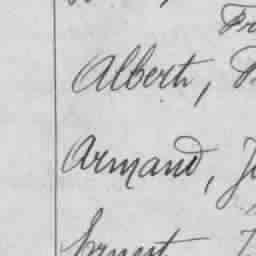 Fr
Albert,
Armand, J
Ernest